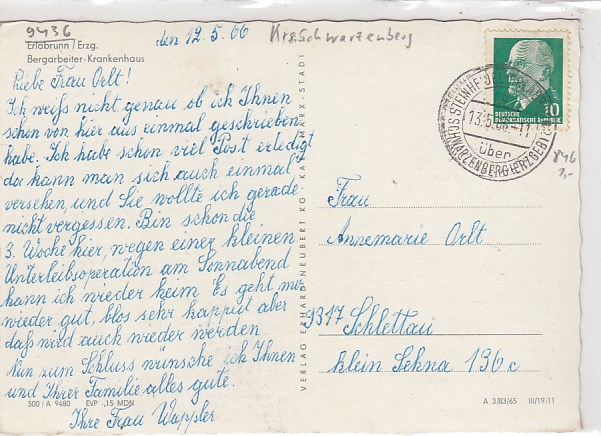 9436
Erlabrunn / Erzg.
Bergarbeiter-Krankenhaus
den 12.5.66
Krs. Schwarzenberg
Liebe Frau Orlt!
Ich weiß nicht genau ob ich Ihnen
schon von hier aus einmal geschrieben
habe. Ich habe schon viel Post erledigt
da kann man sich auch einmal
versehen, und Sie wollte ich gerade
nicht vergessen. Bin schon die
3. Woche hier, wegen einer kleinen
Unterleibsoperation am Sonnabend
kann ich wieder heim. Es geht mir
wieder gut, blos sehr kapput aber
daß wird auch wieder werden.
Nun zum Schluss wünsche ich Ihnen
und Ihrer Familie alles gute.
Ihre Frau Wappler
500 / A 9480 EVP -,15 MDN
VERLAG ERHARD NEUBERT KG · KARL-MARX-STADT
10
DEUTSCHE
DEMOKRATISCHE REPUBLIK
über
SCHWARZENBERG (ERZGEB)
846
3,-
Frau
Annemarie Orlt
9317 Schlettau
klein Sehna 136c
A 3/83/65 III/19/11